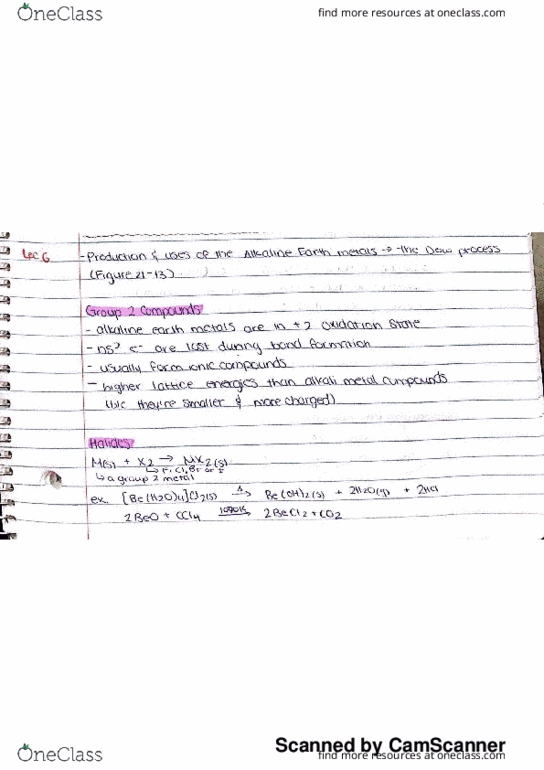 OneClass
find more resources at oneclass.com
Lec 6
- Production & uses of the Alkaline Earth metals → the Dow process
(Figure 21-13)
Group 2 Compounds
- alkaline earth metals are in +2 oxidation state
- ns² e⁻ are lost during bond formation
- usually form ionic compounds
- higher lattice energies than alkali metal compounds
(b/c they're smaller & more charged)
Halides
M(s) + X₂ → MX₂(s)
↳ F, Cl, Br or I
↳ a group 2 metal
ex. [Be(H₂O)₄]Cl₂(s) →Δ Be(OH)₂(s) + 2H₂O(g) + 2HCl
2BeO + CCl₄ → 2BeCl₂ + CO₂
Scanned by CamScanner
OneClass
find more resources at oneclass.com